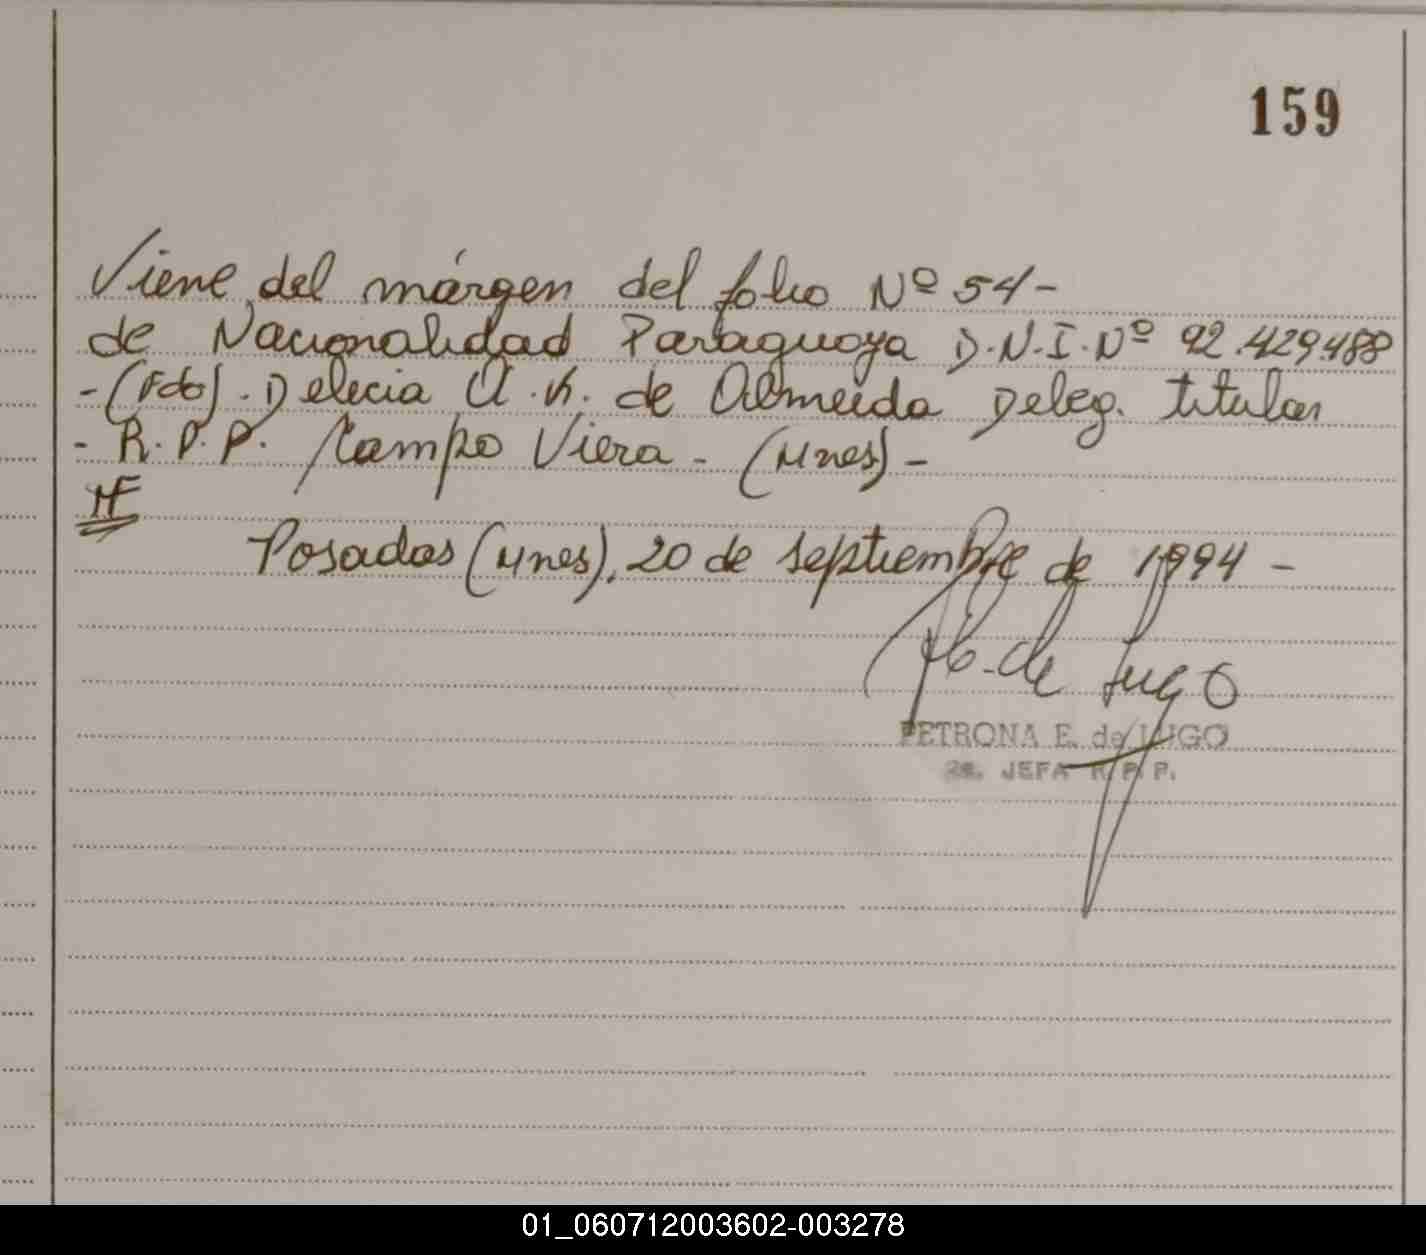 159
Viene del márgen del folio Nº 54-
de Nacionalidad Paraguaya D.N.I. Nº 92.429.488
-(Fdo). Delecia A. K. de Almeida Deleg. titular
- R.P.P. Campo Viera - (Mnes) -
Posadas (Mnes), 20 de septiembre de 1994 -
de Lugo
PETRONA E. de LUGO
JEFA R.P.P.
01_060712003602-003278